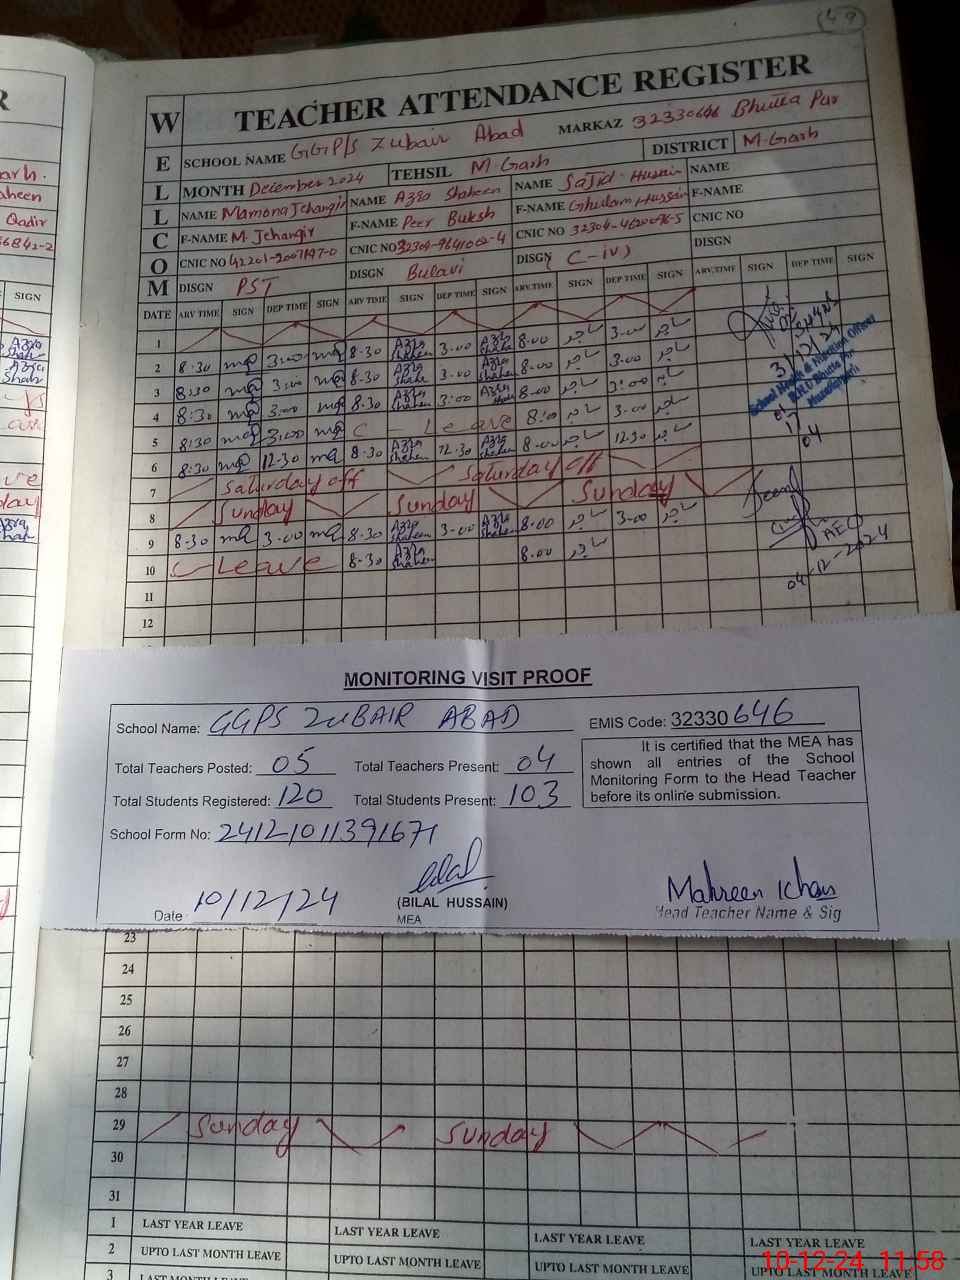 49
W TEACHER ATTENDANCE REGISTER
E SCHOOL NAME GGP/S Zubair Abad MARKAZ 32330646 Bhutta Pur
L MONTH December 2024 TEHSIL M. Garh DISTRICT M. Garh
L NAME Mamona Jehangir NAME Azra Shaheen NAME Sajid Husain NAME
C F-NAME M. Jehangir F-NAME Peer Buksh F-NAME Ghulam Hussain F-NAME
O CNIC NO CNIC NO 32304-9641002-4 CNIC NO CNIC NO
M DISGN PST DISGN DISGN (C-iv) DISGN
DATE ARV TIME SIGN DEP TIME SIGN ARV TIME SIGN DEP TIME SIGN ARV TIME SIGN DEP TIME SIGN ARV TIME SIGN DEP TIME SIGN
1
2 8.30 mq 3:00 mq 8-30 Azra Shaheen 3.00 Azra Shaheen 8.00 ساجد 3.00 ساجد
3 8:30 mq 3:00 mq 8-30 Azra Shaheen 3.00 Azra Shaheen 8.00 ساجد 3.00 ساجد
4 8:30 mq 3:00 mq 8.30 Azra Shaheen 3:00 Azra 8.00 ساجد 3:00 ساجد
5 8:30 mq 3:00 mq C - Leave 8:00 ساجد 3.00 ساجد
6 8:30 mq 12.30 mq 8.30 Azra Shaheen 12.30 Azra Shaheen 8.00 ساجد 12.30 ساجد
7 Saturday off Saturday off
8 Sunday Sunday Sunday
9 8.30 mq 3.00 mq 8.30 Azra Shaheen 3.00 Azra Shaheen 8.00 ساجد 3.00 ساجد
10 C-Leave 8.30 Azra Shaheen 8.00 ساجد
11
12
School Health & Nutrition Officer
AEO
04-12-2024
MONITORING VISIT PROOF
School Name: GGPS ZUBAIR ABAD EMIS Code: 32330646
Total Teachers Posted: 05 Total Teachers Present: 04
Total Students Registered: 120 Total Students Present: 103
It is certified that the MEA has
shown all entries of the School
Monitoring Form to the Head Teacher
before its online submission.
School Form No: 24121011391671
Date 10/12/24
(BILAL HUSSAIN)
MEA
Mahreen Khan
Head Teacher Name & Sig
23
24
25
26
27
28
29 Sunday Sunday
30
31
1 LAST YEAR LEAVE LAST YEAR LEAVE LAST YEAR LEAVE LAST YEAR LEAVE
2 UPTO LAST MONTH LEAVE UPTO LAST MONTH LEAVE UPTO LAST MONTH LEAVE UPTO LAST MONTH LEAVE
3
10-12-24 11:58